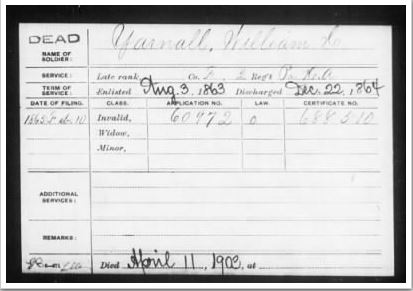 DEAD
NAME OF SOLDIER:
Yarnall, William
SERVICE:
Late rank, Co. 2 Reg't Pa. H. A
TERM OF SERVICE:
Enlisted Aug. 3, 1863 Discharged Dec. 22, 1864
DATE OF FILING. CLASS. APPLICATION NO. LAW. CERTIFICATE NO.
1865 Feb. 10 Invalid, 60972 0 688510
Widow,
Minor,
ADDITIONAL SERVICES:
REMARKS:
Died April 11, 1902, at